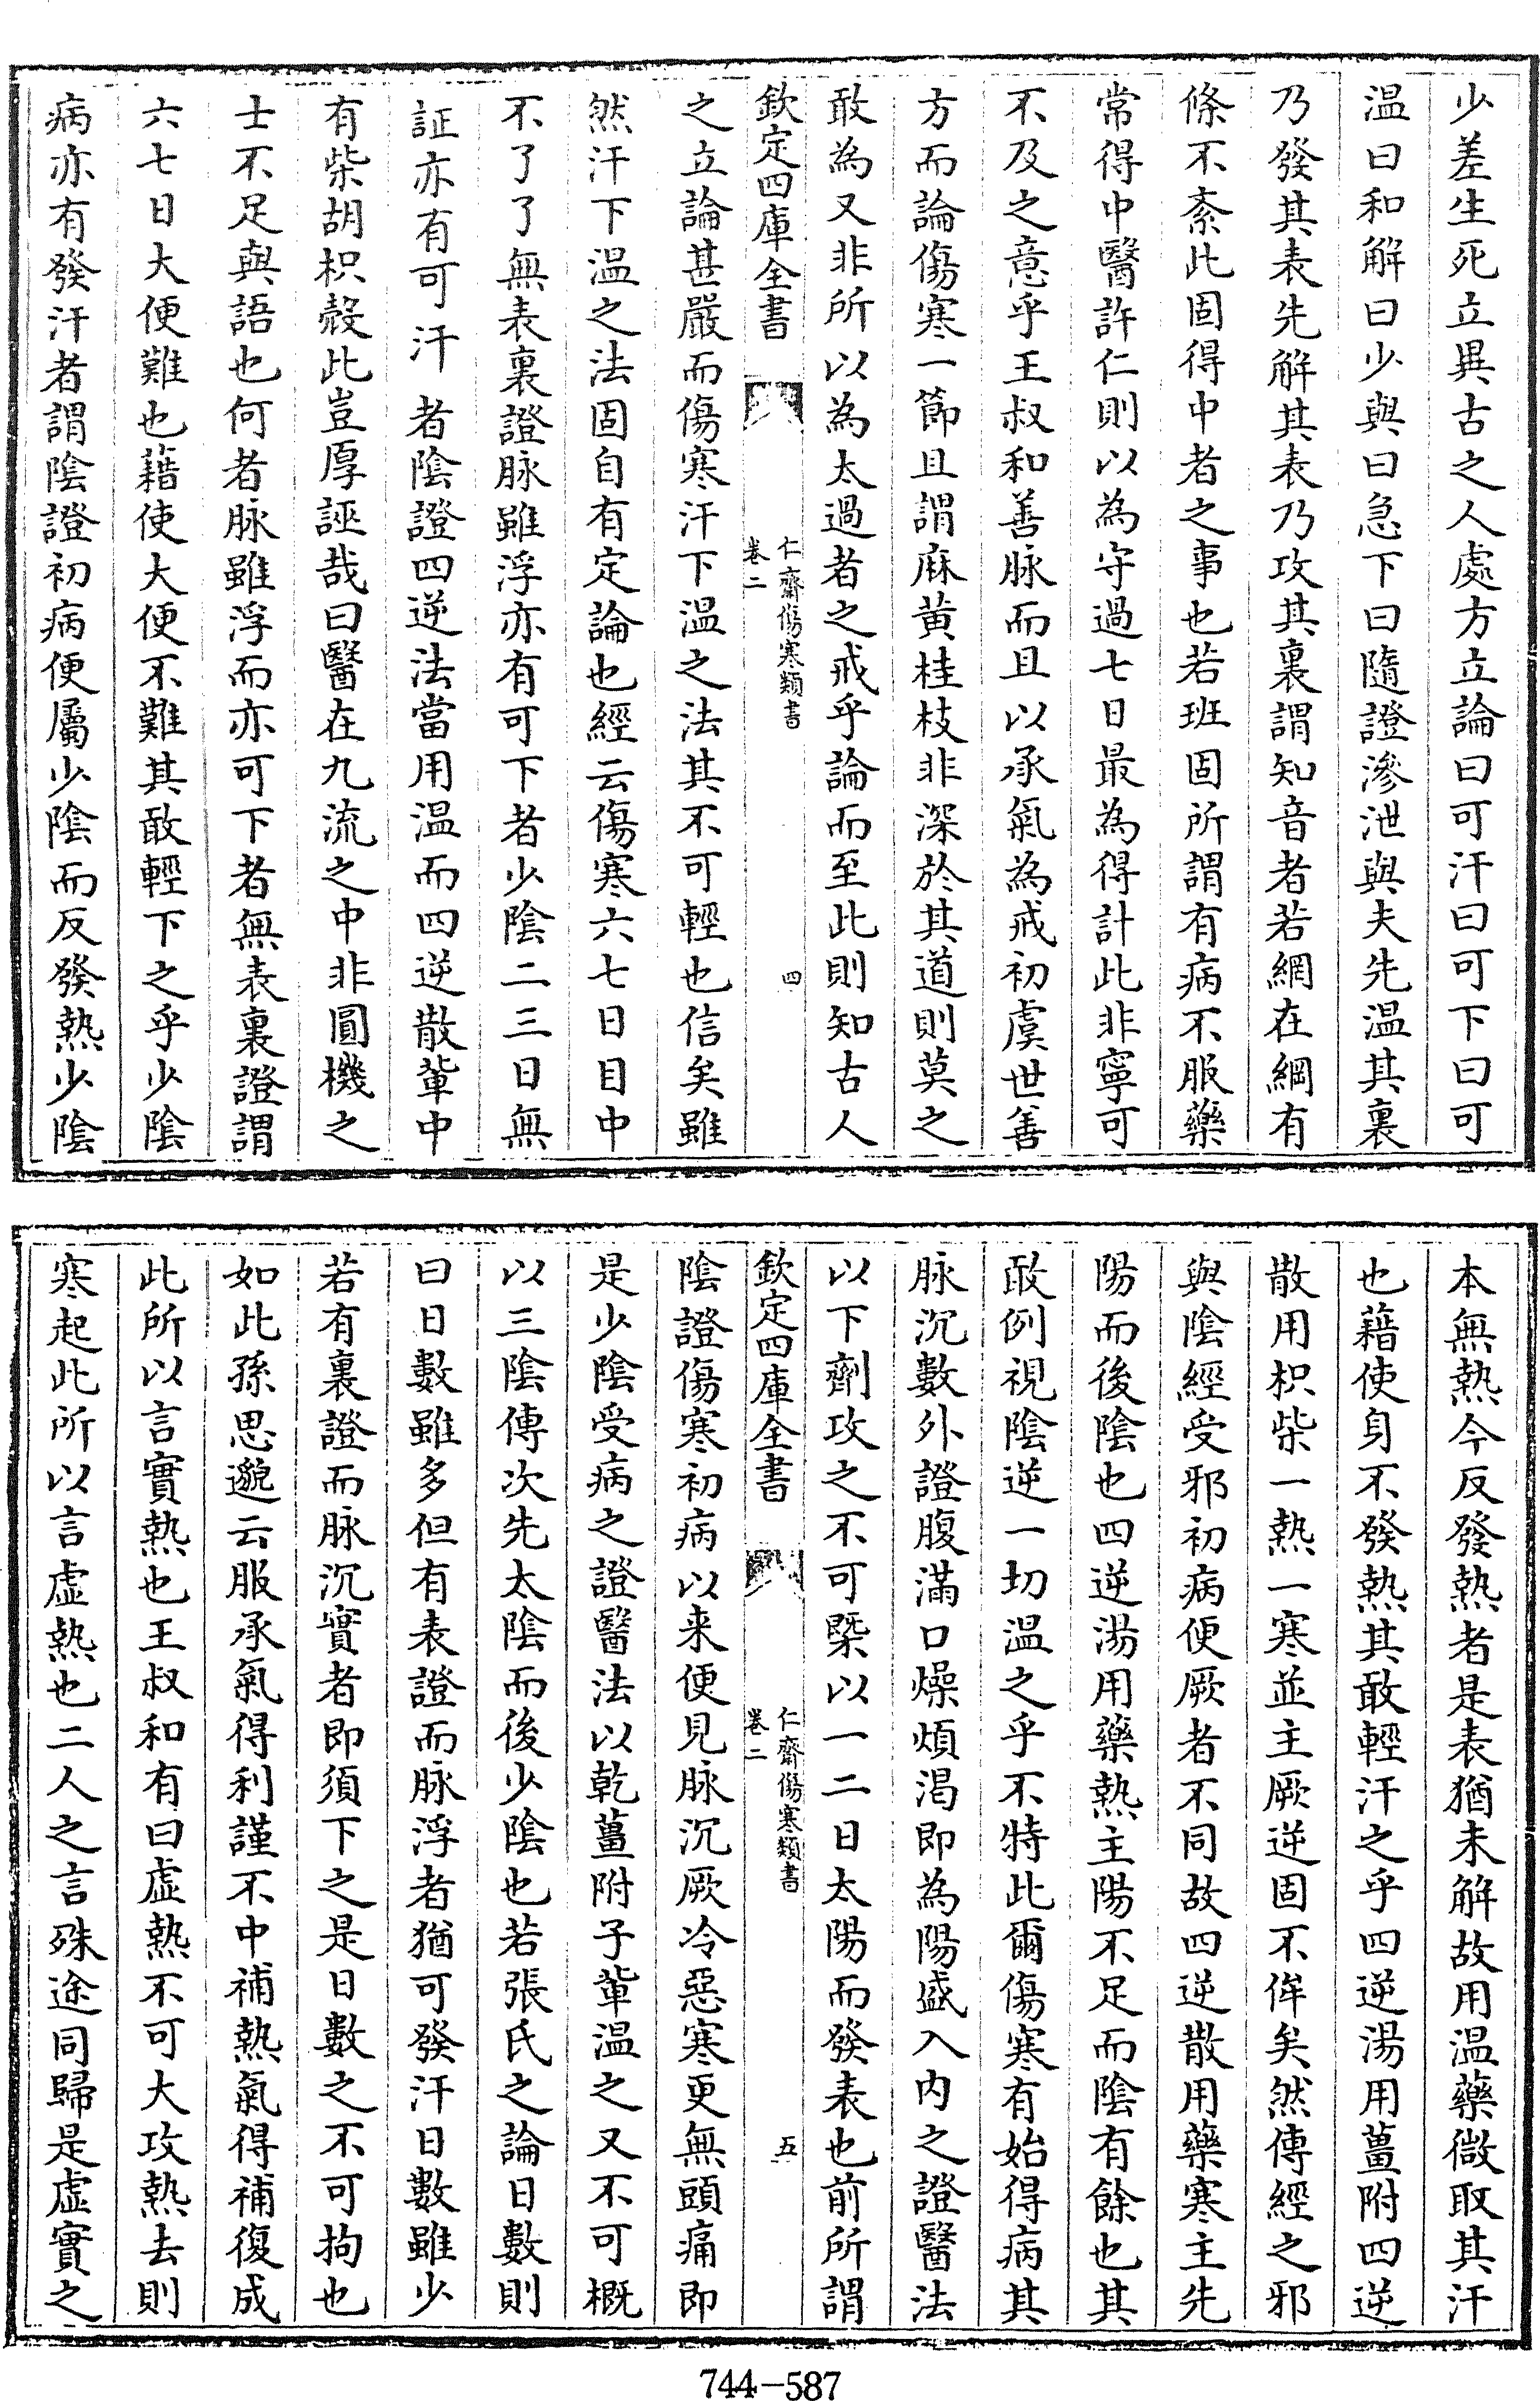 少差生死立異古之人處方立論曰可汗曰可下曰可
温曰和解曰少與曰急下曰隨證滲泄與夫先温其裏
乃發其表先解其表乃攻其裏謂知音者若網在綱有
條不紊此固得中者之事也若班固所謂有病不服藥
常得中醫許仁則以為守過七日最為得計此非寧可
不及之意乎王叔和善脉而且以承氣為戒初虞世善
方而論傷寒一節且謂麻黄桂枝非深於其道則莫之
敢為又非所以為太過者之戒乎論而至此則知古人
欽定四庫全書
仁齋傷寒類書
卷二
四
之立論甚嚴而傷寒汗下温之法其不可輕也信矣雖
然汗下温之法固自有定論也經云傷寒六七日目中
不了了無表裏證脉雖浮亦有可下者少陰二三日無
証亦有可汗者陰證四逆法當用温而四逆散軰中
有柴胡枳殻此豈厚誣哉曰醫在九流之中非圓機之
士不足與語也何者脉雖浮而亦可下者無表裏證謂
六七日大便難也藉使大便不難其敢輕下之乎少陰
病亦有發汗者謂陰證初病便屬少陰而反發熱少陰
本無熱今反發熱者是表猶未解故用温藥微取其汗
也藉使身不發熱其敢輕汗之乎四逆湯用薑附四逆
散用枳柴一熱一寒並主厥逆固不侔矣然傳經之邪
與陰經受邪初病便厥者不同故四逆散用藥寒主先
陽而後陰也四逆湯用藥熱主陽不足而陰有餘也其
敢例視陰逆一切温之乎不特此爾傷寒有始得病其
脉沉數外證腹滿口燥煩渇即為陽盛入内之證醫法
以下劑攻之不可槩以一二日太陽而發表也前所謂
欽定四庫全書
仁齋傷寒類書
卷二
五
陰證傷寒初病以来便見脉沉厥冷惡寒更無頭痛即
是少陰受病之證醫法以乾薑附子軰温之又不可概
以三陰傳次先太陰而後少陰也若張氏之論日數則
曰日數雖多但有表證而脉浮者猶可發汗日數雖少
若有裏證而脉沉實者即須下之是日數之不可拘也
如此孫思邈云服承氣得利謹不中補熱氣得補復成
此所以言實熱也王叔和有曰虚熱不可大攻熱去則
寒起此所以言虚熱也二人之言殊途同歸是虚實之
744-587